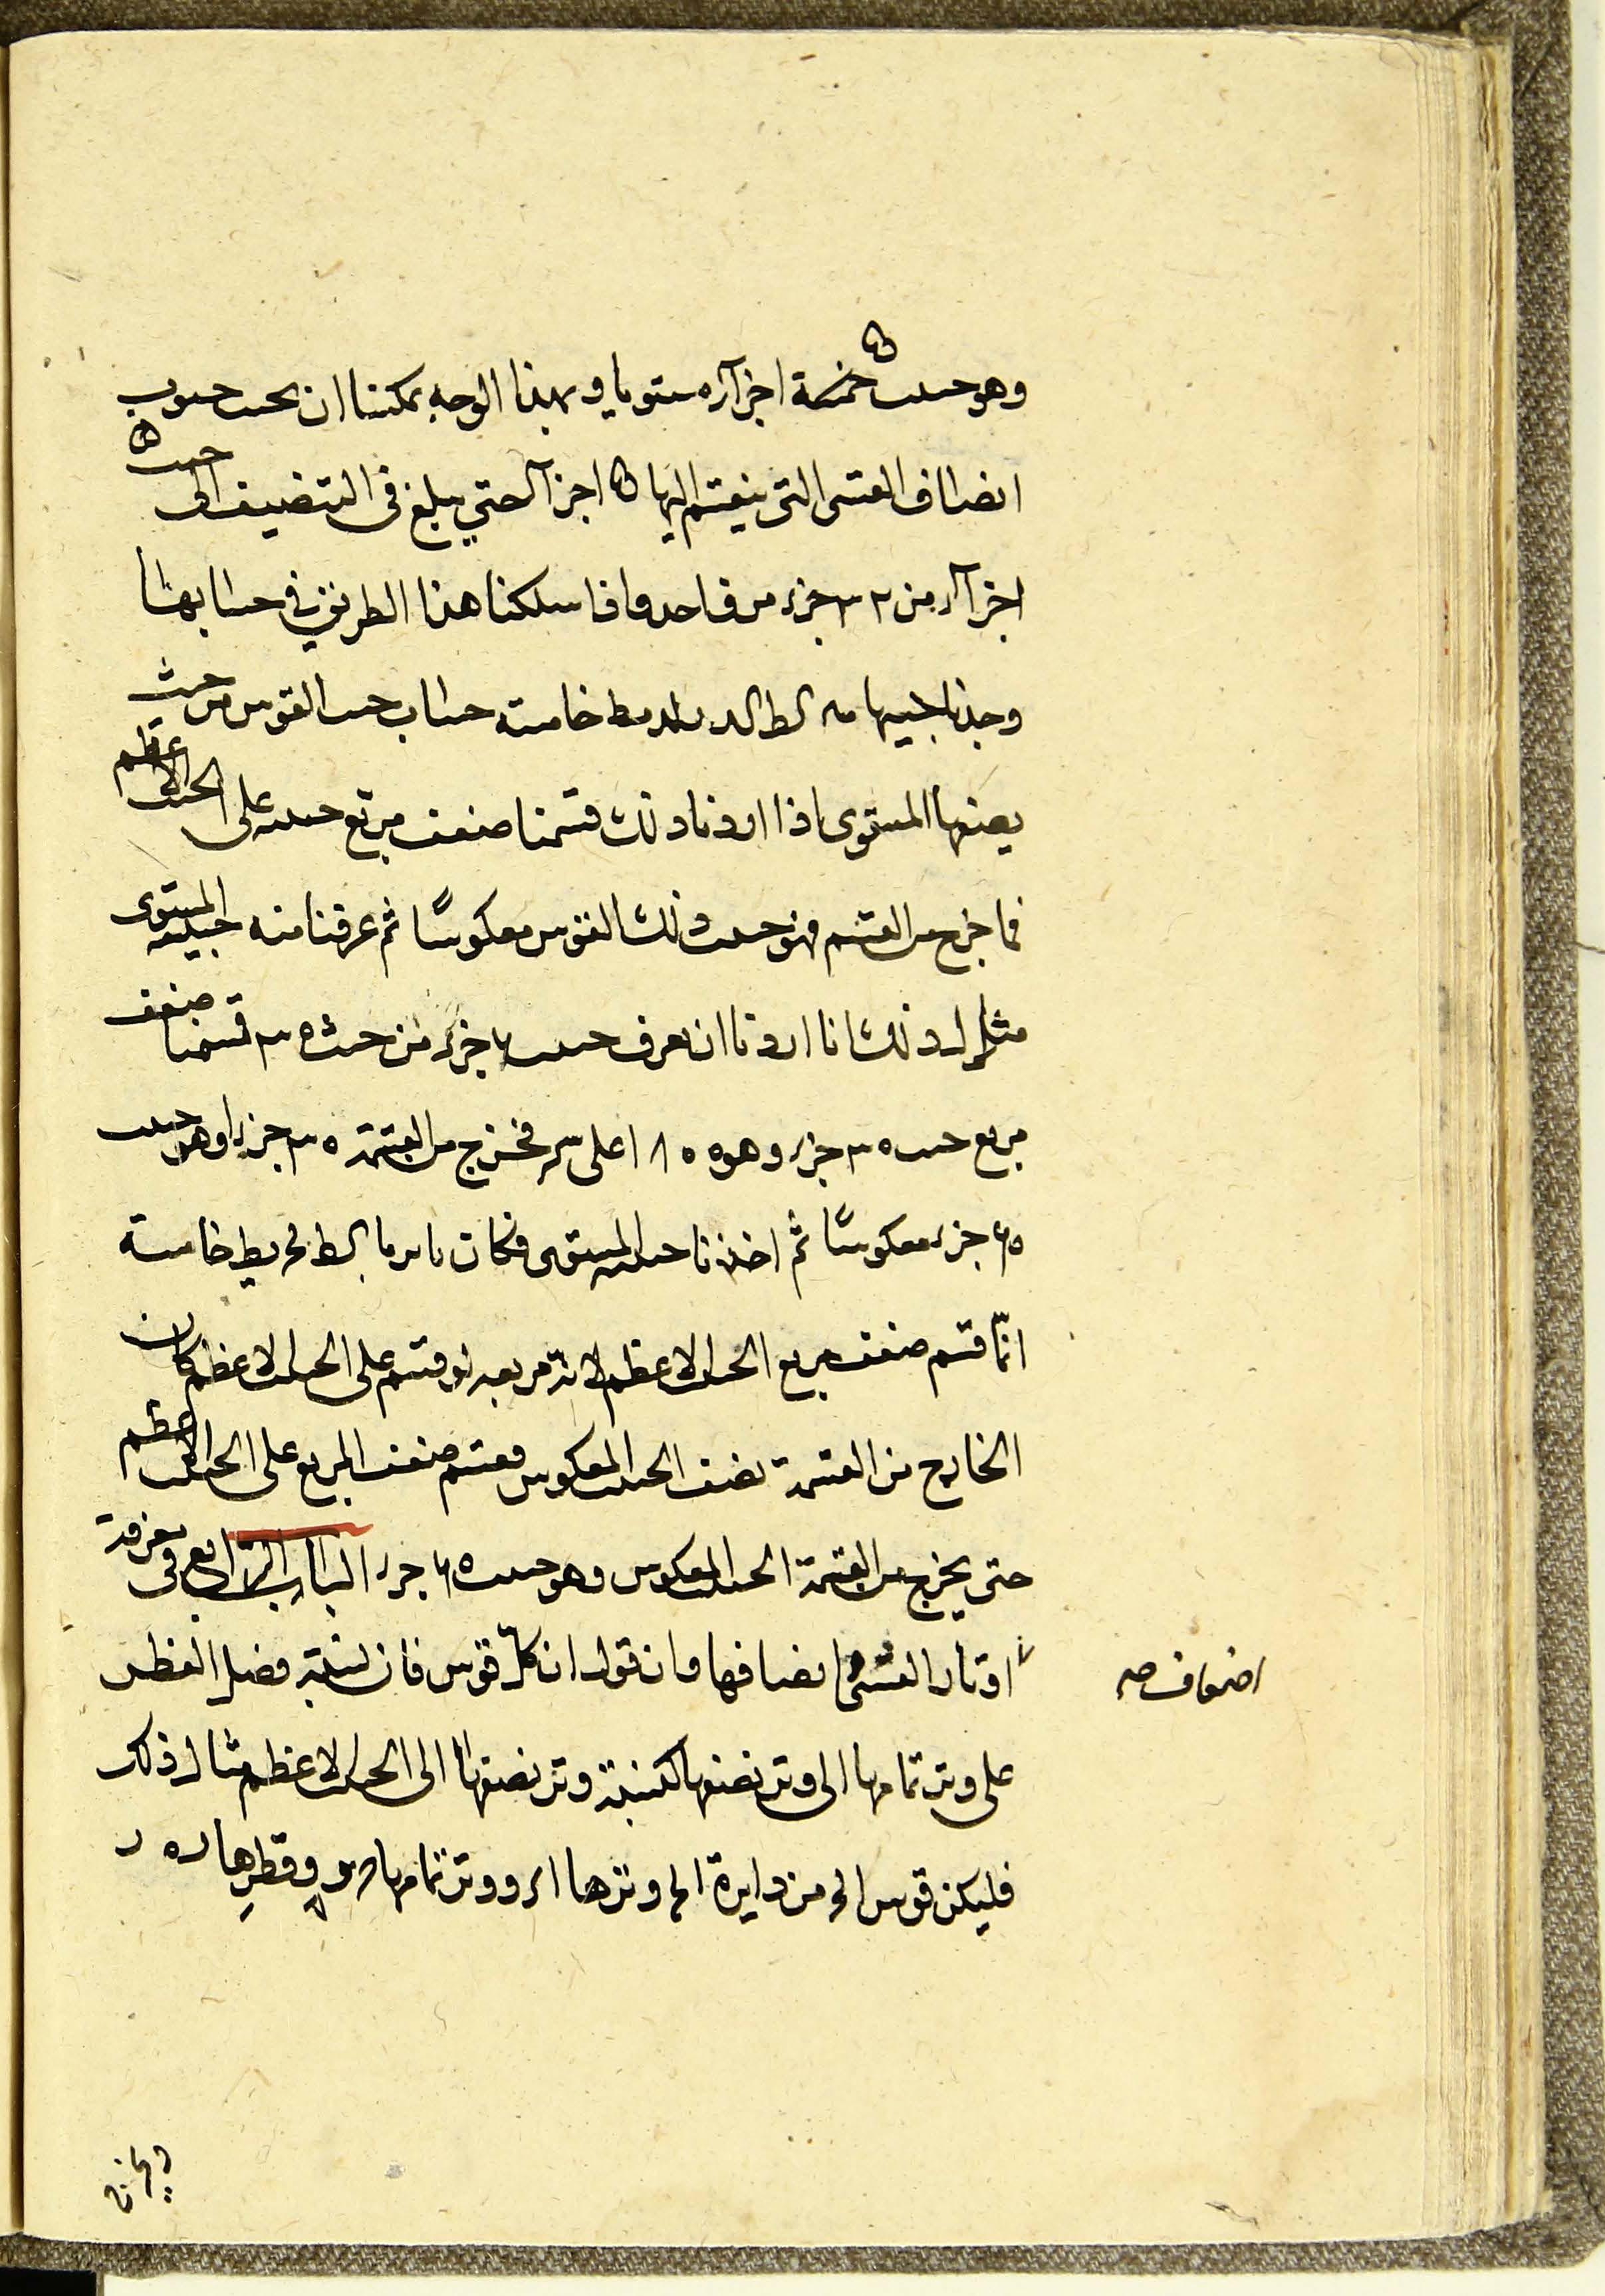 ٥
وهو جيب خمسة اجزآء مستويا وبهذا الوجه يمكننا ان نحسب جيوب
انصاف القسى التى ينقسم اليها ٥ اجزآ حتي يبلغ فى التضعيف الى جيب ٥
اجزآء من ٣٢ جزء من واحد واذا سلكنا هذا الطريق في حسابها
وجدنا جيبها خامسة حساب جيب القوس من حيث
نصفها المستوى اذا اردنا ذلك قسمنا ضعف مربع جيبه على الجيب الاعظم
فما خرج من القسم فهو جيب ذلك القوس معكوسًا ثم عرفنا منه جيبه المستوى
مثال ذلك انا اردنا ان نعرف جيب ٦٠ جزء من حيث ٣٠ قسمنا ضعف
مربع جيب ٣٠ جزء وهو ١٨٠٠ على س فخرج من القسمة ٣٠ جزءا وهو جيب
٦٠ جزء معكوسًا ثم اخذنا جيبه المستوى فكان خامسة
انّما قسم ضعف مربع الجيب الاعظم لانّ مربعه لو قسم على الجيب الاعظم كان
الخارج من القسمة نصف الجيب المعكوس فقسم ضعف المربع على الجيب الاعظم
حتى يخرج من القسمة الجيب المعكوس وهو جيب ٦٠ جزء الباب الرابع فى معرفة
اوتار القسى انصافها وان نقول ان كلّ قوس فان نسبة فضل القطر
اضعاف صح
على وتر تمامها الى وتر نصفها كنسبة وتر نصفها الى الجيب الاعظم مثال ذلك
فليكن قوس من دايرة وترها ووتر تمامها وقطرها